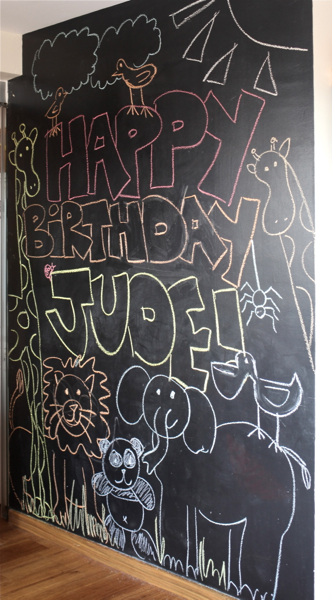 HAPPY
BiRTHDAY
JUDE!